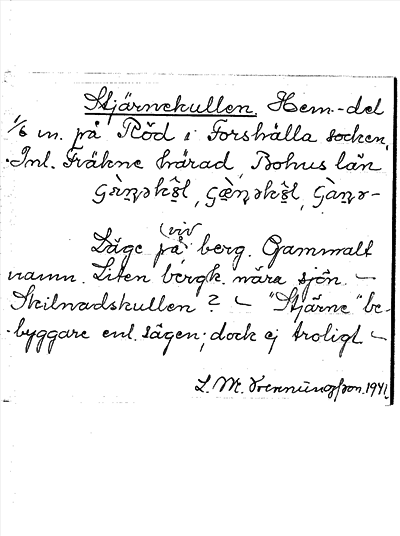 Stjärnekullen. Hem.-del
1/6 m. på Röd i Forshälla socken,
Inl. Fräkne härad, Bohus län

vid
Läge på berg. Gammalt
namn. Liten bergk. nära sjön. –
Skilnadskullen? – "Stjärne" be-
byggare enl. sägen; dock ej troligt –
L. M. 1941.